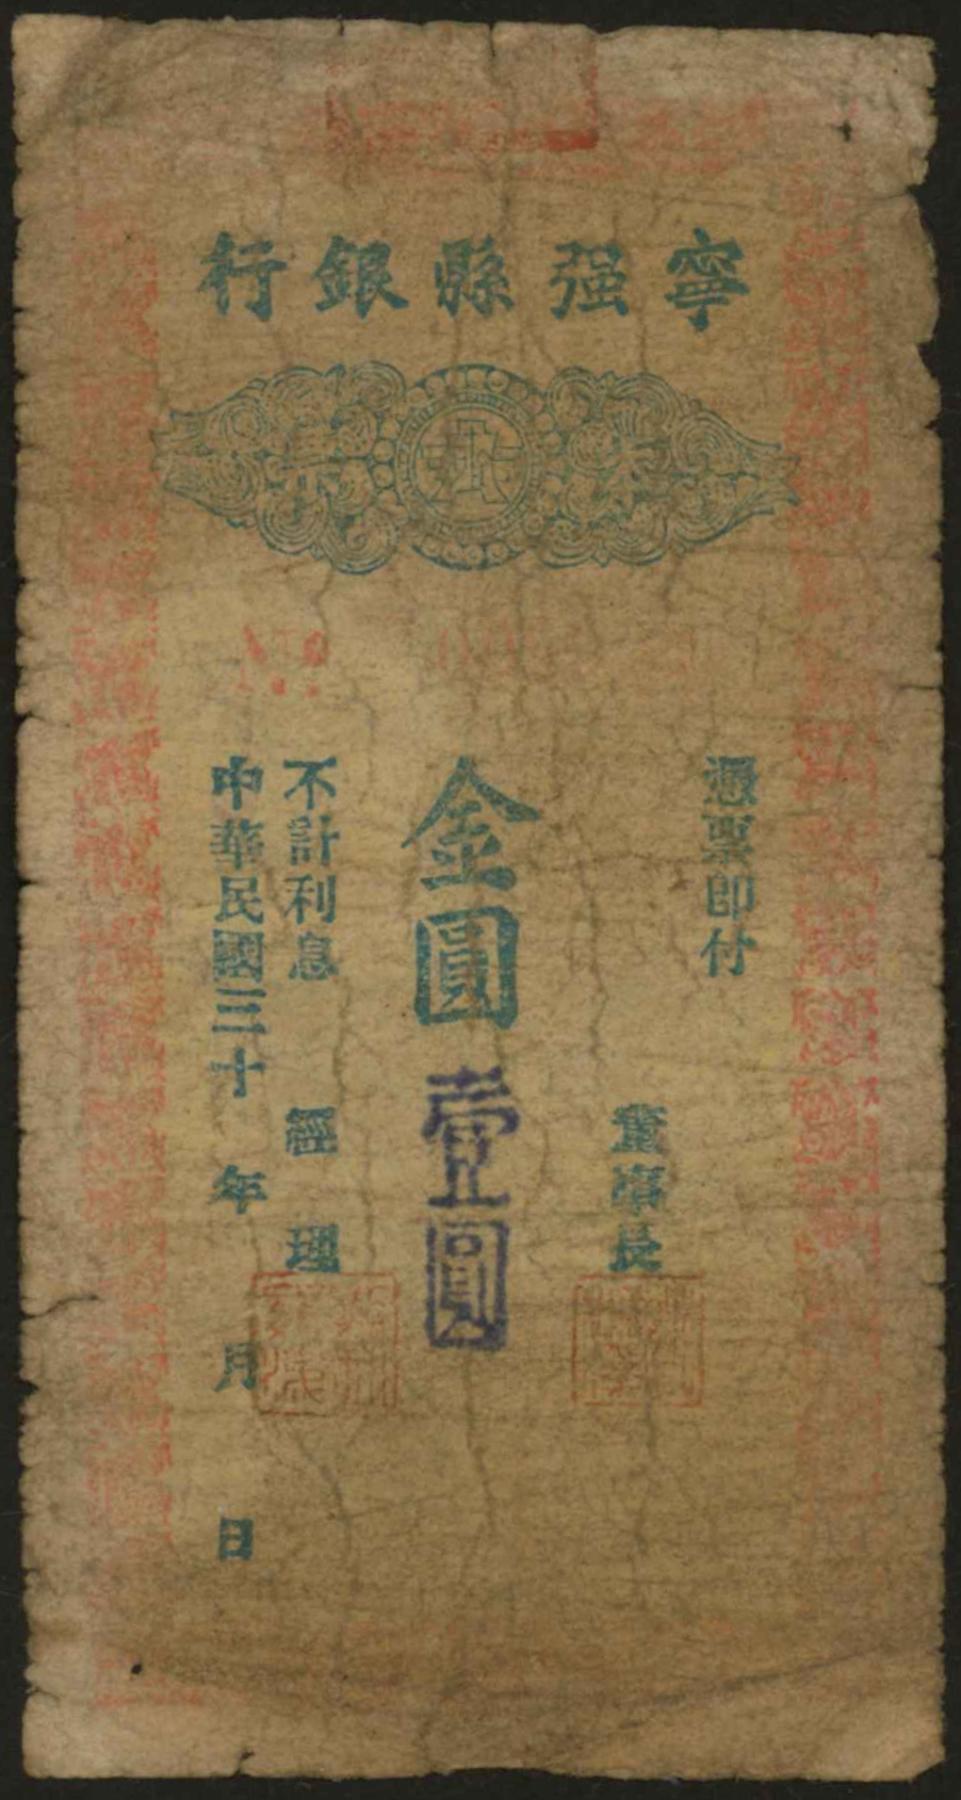 寧强縣銀行
本票
憑票即付
董事長
金圓壹圓
不計利息
經理
中華民國三十 年 月 日